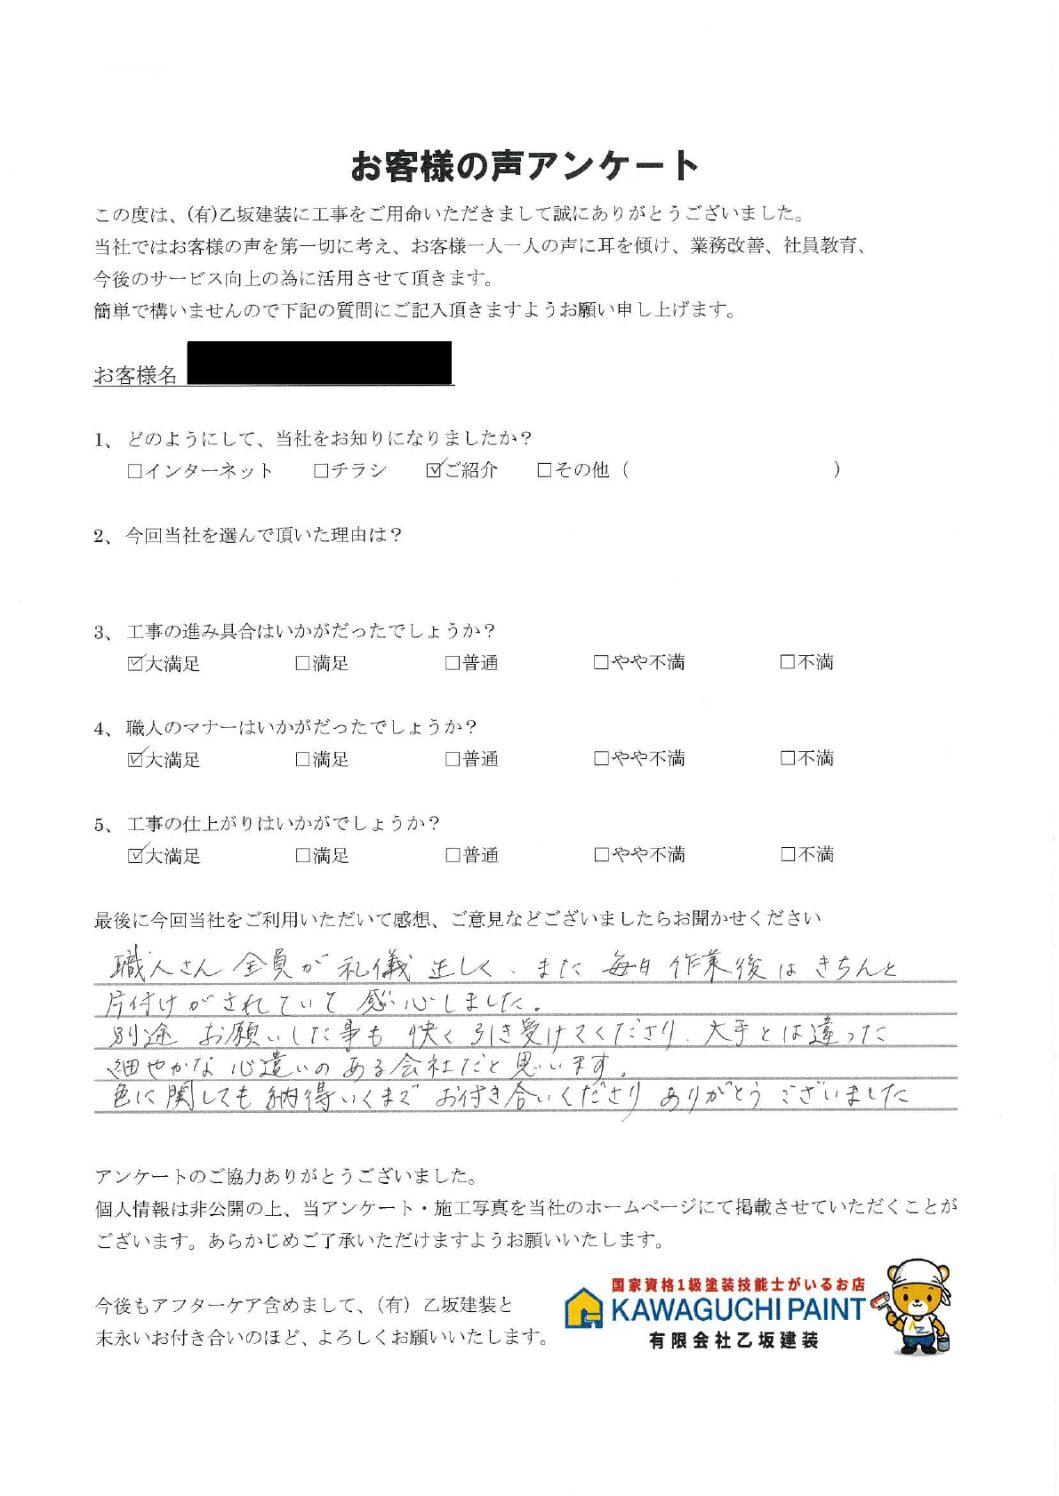 お客様の声アンケート
この度は、(有)乙坂建装に工事をご用命いただきまして誠にありがとうございました。
当社ではお客様の声を第一切に考え、お客様一人一人の声に耳を傾け、業務改善、社員教育、
今後のサービス向上の為に活用させて頂きます。
簡単で構いませんので下記の質問にご記入頂きますようお願い申し上げます。
お客様名
1、どのようにして、当社をお知りになりましたか？
□インターネット □チラシ ☑ご紹介 □その他（ ）
2、今回当社を選んで頂いた理由は？
3、工事の進み具合はいかがだったでしょうか？
☑大満足 □満足 □普通 □やや不満 □不満
4、職人のマナーはいかがだったでしょうか？
☑大満足 □満足 □普通 □やや不満 □不満
5、工事の仕上がりはいかがでしょうか？
☑大満足 □満足 □普通 □やや不満 □不満
最後に今回当社をご利用いただいて感想、ご意見などございましたらお聞かせください
職人さん全員が礼儀正しく、また毎日作業後はきちんと
片付けがされていて感心しました。
別途お願いした事も快く引き受けてくださり、大手とは違った
細やかな心遣いのある会社だと思います。
色に関しても納得いくまでお付き合いくださりありがとうございました
アンケートのご協力ありがとうございました。
個人情報は非公開の上、当アンケート・施工写真を当社のホームページにて掲載させていただくことが
ございます。あらかじめご了承いただけますようお願いいたします。
今後もアフターケア含めまして、（有）乙坂建装と
末永いお付き合いのほど、よろしくお願いいたします。
国家資格1級塗装技能士がいるお店
KAWAGUCHI PAINT
有限会社乙坂建装